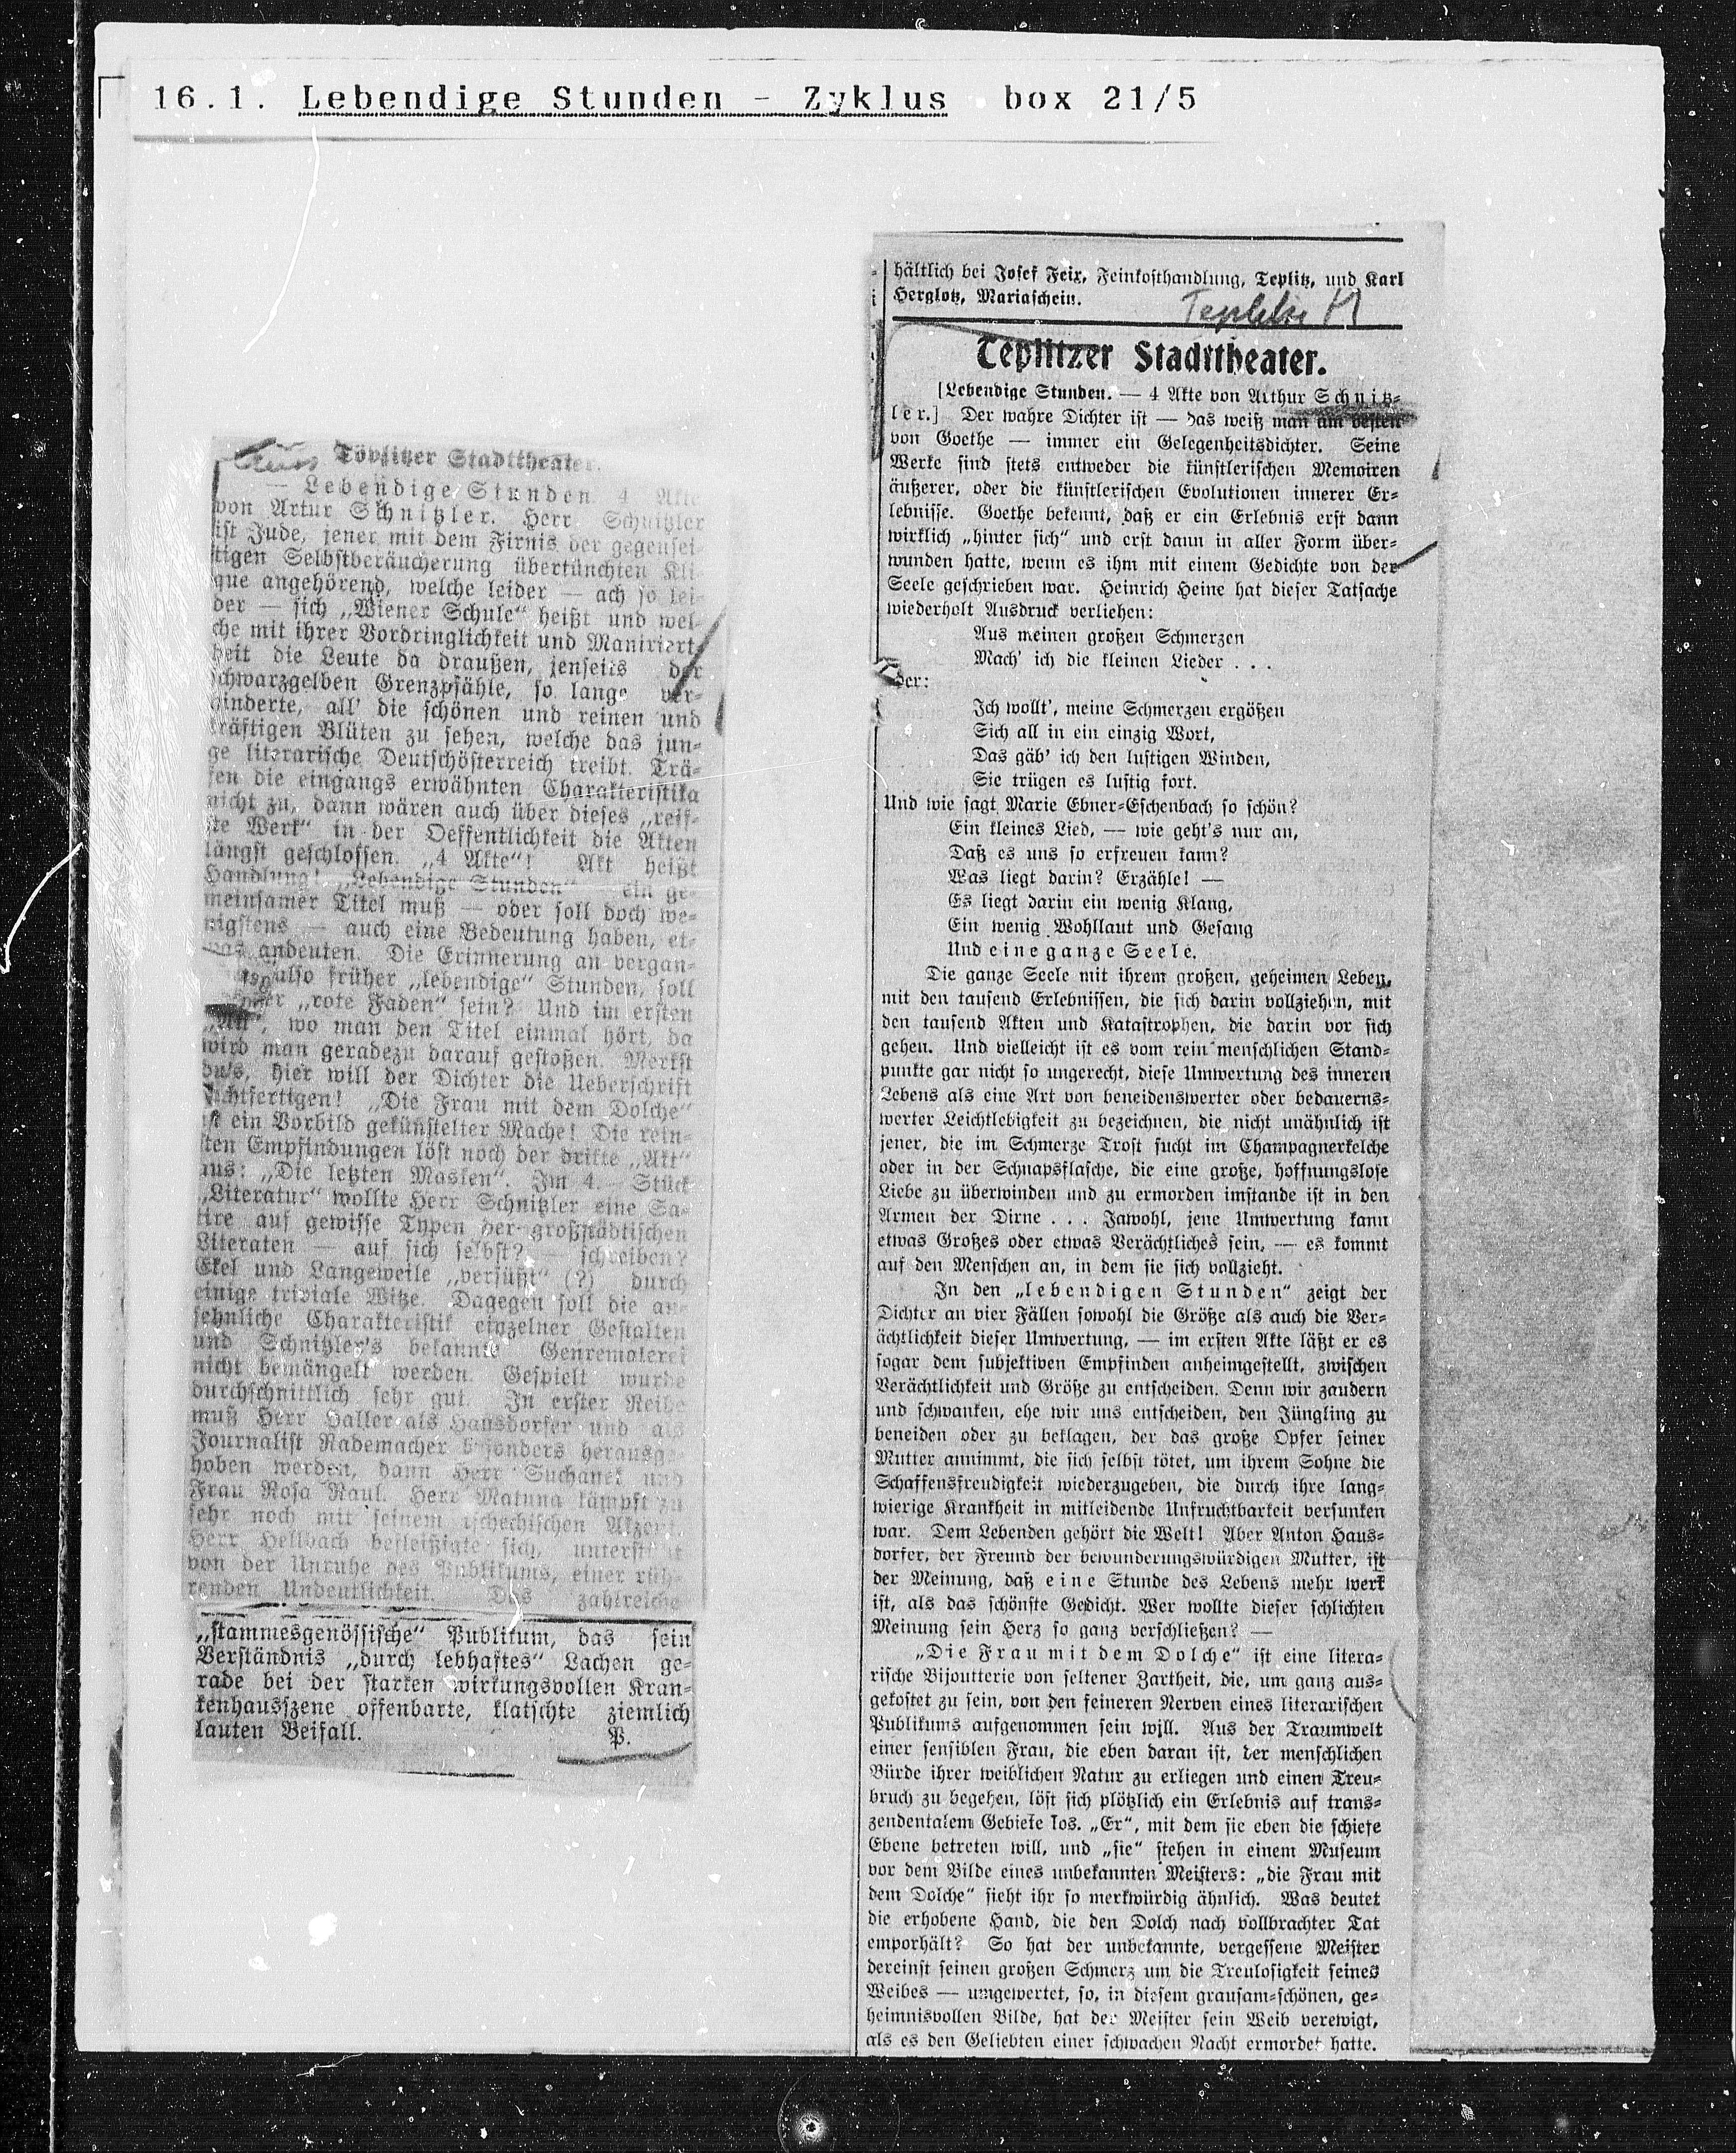 16.1. Lebendige Stunden - Zyklus box 21/5
Töplitzer Stadttheater.
— Lebendige Stunden 4 Akte
von Artur Schnitzler. Herr Schnitzler
ist Jude, jener mit dem Firnis der gegensei-
tigen Selbstberäucherung übertünchten Kli-
que angehörend, welche leider — ach so lei-
der — sich „Wiener Schule“ heißt und wel-
che mit ihrer Vordringlichkeit und Maniriert-
heit die Leute da draußen, jenseits der
schwarzgelben Grenzpfähle, so lange ver-
hinderte, all' die schönen und reinen und
kräftigen Blüten zu sehen, welche das jun-
ge literarische Deutschösterreich treibt. Trä-
fen die eingangs erwähnten Charakteristika
nicht zu, dann wären auch über dieses „reif-
ste Werk“ in der Oeffentlichkeit die Akten
längst geschlossen. „4 Akte“! Akt heißt
Handlung! „Lebendige Stunden“ ein ge-
meinsamer Titel muß — oder soll doch we-
nigstens — auch eine Bedeutung haben, et-
was andeuten. Die Erinnerung an vergan-
also früher „lebendige“ Stunden, soll
der „rote Faden“ sein? Und im ersten
„Akt“, wo man den Titel einmal hört, da
wird man geradezu darauf gestoßen. Merkst
du's, hier will der Dichter die Ueberschrift
rechtfertigen! „Die Frau mit dem Dolche“
ist ein Vorbild gekünstelter Mache! Die rein-
sten Empfindungen löst noch der dritte „Akt“
aus: „Die letzten Masken“. Im 4. Stück
„Literatur“ wollte Herr Schnitzler eine Sa-
tire auf gewisse Typen der großstädtischen
Literaten — auf sich selbst? — schreiben?
Ekel und Langeweile „versüßt“ (?) durch
einige triviale Witze. Dagegen soll die an-
sehnliche Charakteristik einzelner Gestalten
und Schnitzler's bekannte Genremalerei
nicht bemängelt werden. Gespielt wurde
durchschnittlich sehr gut. In erster Reihe
muß Herr Haller als Hausdorfer und als
Journalist Rademacher besonders herausge-
hoben werden, dann Herr Suchanek und
Frau Rosa Raul. Herr Matuna kämpft zu
sehr noch mit seinem tschechischen Akzent.
Herr Hellbach befleißigte sich, unterstützt
von der Unruhe des Publikums, einer rüh-
renden Undeutlichkeit. Das zahlreiche
„stammesgenössische“ Publikum, das sein
Verständnis „durch lebhaftes“ Lachen ge-
rade bei der starken wirkungsvollen Kran-
kenhausszene offenbarte, klatschte ziemlich
lauten Beifall. P.
hältlich bei Josef Feix, Feinkosthandlung, Teplitz, und Karl
Herglotz, Mariaschein.
Teplitzer Stadttheater.
[Lebendige Stunden. — 4 Akte von Arthur Schnitz-
ler.] Der wahre Dichter ist — das weiß man am besten
von Goethe — immer ein Gelegenheitsdichter. Seine
Werke sind stets entweder die künstlerischen Memoiren
äußerer, oder die künstlerischen Evolutionen innerer Er-
lebnisse. Goethe bekennt, daß er ein Erlebnis erst dann
wirklich „hinter sich“ und erst dann in aller Form über-
wunden hatte, wenn es ihm mit einem Gedichte von der
Seele geschrieben war. Heinrich Heine hat dieser Tatsache
wiederholt Ausdruck verliehen:
Aus meinen großen Schmerzen
Mach' ich die kleinen Lieder . . .
der:
Ich wollt', meine Schmerzen ergößen
Sich all in ein einzig Wort,
Das gäb' ich den lustigen Winden,
Sie trügen es lustig fort.
Und wie sagt Marie Ebner-Eschenbach so schön?
Ein kleines Lied, — wie geht's nur an,
Daß es uns so erfreuen kann?
Was liegt darin? Erzähle! —
Es liegt darin ein wenig Klang,
Ein wenig Wohllaut und Gesang
Und eine ganze Seele.
Die ganze Seele mit ihrem großen, geheimen Leben,
mit den tausend Erlebnissen, die sich darin vollziehen, mit
den tausend Akten und Katastrophen, die darin vor sich
gehen. Und vielleicht ist es vom rein menschlichen Stand-
punkte gar nicht so ungerecht, diese Umwertung des inneren
Lebens als eine Art von beneidenswerter oder bedauerns-
werter Leichtlebigkeit zu bezeichnen, die nicht unähnlich ist
jener, die im Schmerze Trost sucht im Champagnerkelche
oder in der Schnapsflasche, die eine große, hoffnungslose
Liebe zu überwinden und zu ermorden imstande ist in den
Armen der Dirne . . . Jawohl, jene Umwertung kann
etwas Großes oder etwas Verächtliches sein, — es kommt
auf den Menschen an, in dem sie sich vollzieht.
In den „lebendigen Stunden“ zeigt der
Dichter an vier Fällen sowohl die Größe als auch die Ver-
ächtlichkeit dieser Umwertung, — im ersten Akte läßt er es
sogar dem subjektiven Empfinden anheimgestellt, zwischen
Verächtlichkeit und Größe zu entscheiden. Denn wir zaudern
und schwanken, ehe wir uns entscheiden, den Jüngling zu
beneiden oder zu beklagen, der das große Opfer seiner
Mutter annimmt, die sich selbst tötet, um ihrem Sohne die
Schaffensfreudigkeit wiederzugeben, die durch ihre lang-
wierige Krankheit in mitleidende Unfruchtbarkeit versunken
war. Dem Lebenden gehört die Welt! Aber Anton Haus-
dorfer, der Freund der bewunderungswürdigen Mutter, ist
der Meinung, daß eine Stunde des Lebens mehr wert
ist, als das schönste Gedicht. Wer wollte dieser schlichten
Meinung sein Herz so ganz verschließen? —
„Die Frau mit dem Dolche“ ist eine litera-
rische Bijoutterie von seltener Zartheit, die, um ganz aus-
gekostet zu sein, von den feineren Nerven eines literarischen
Publikums aufgenommen sein will. Aus der Traumwelt
einer sensiblen Frau, die eben daran ist, der menschlichen
Bürde ihrer weiblichen Natur zu erliegen und einen Treu-
bruch zu begehen, löst sich plötzlich ein Erlebnis auf trans-
zendentalem Gebiete los. „Er“, mit dem sie eben die schiefe
Ebene betreten will, und „sie“ stehen in einem Museum
vor dem Bilde eines unbekannten Meisters: „die Frau mit
dem Dolche“ sieht ihr so merkwürdig ähnlich. Was deutet
die erhobene Hand, die den Dolch nach vollbrachter Tat
emporhält? So hat der unbekannte, vergessene Meister
dereinst seinen großen Schmerz um die Treulosigkeit seines
Weibes — umgewertet, so, in diesem grausam-schönen, ge-
heimnisvollen Bilde, hat der Meister sein Weib verewigt,
als es den Geliebten einer schwachen Nacht ermordet hatte.